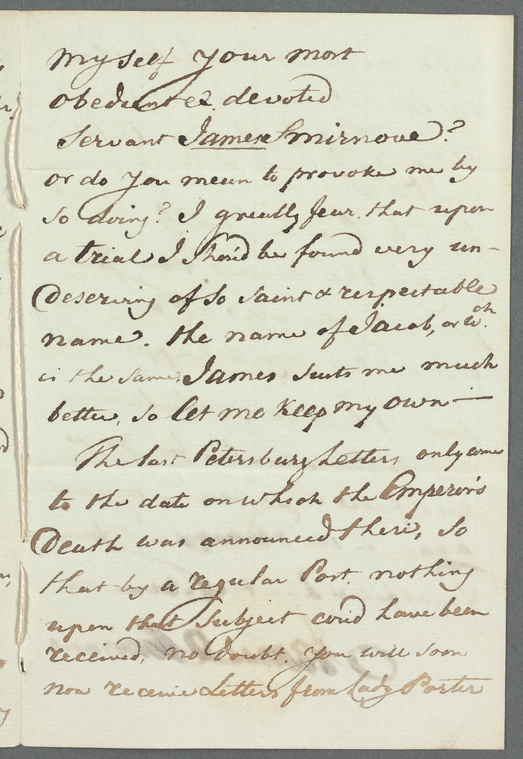 myself your most
obedient & devoted
servant James Smirnove?
or do you mean to provoke me by
so doing? I greatly fear, that upon
a trial I shou'd be found very un-
deserving of so saint & respectable
name. The name of Jacob, or wch.
is the same, James suits me much
better, so let me keep my own —
The last Petersburg Letters only come
to the date on which the Emperor's
Death was announced there, so
that by a regular Post, nothing
upon that subject cou'd have been
received, no doubt, you will soon
now receive Letters from Lady Porter